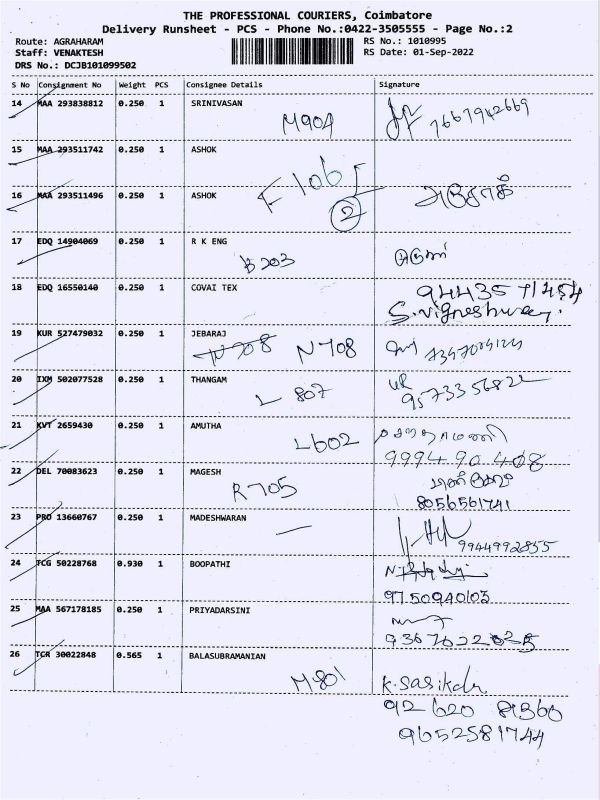 THE PROFESSIONAL COURIERS, Coimbatore
Delivery Runsheet - PCS - Phone No.:0422-3505555 - Page No.:2
Route: AGRAHARAM RS No.: 1010995
Staff: VENAKTESH RS Date: 01-Sep-2022
DRS No.: DCJB101099502
S No Consignment No Weight PCS Consignee Details Signature
14 MAA 293838812 0.250 1 SRINIVASAN
M904 7667942669
15 MAA 293511742 0.250 1 ASHOK
F 1065
16 MAA 293511496 0.250 1 ASHOK
2 அசோக்
17 EDQ 14904069 0.250 1 R K ENG
B 203 அருண்
18 EDQ 16550140 0.250 1 COVAI TEX
94435 71454
S. Vigneshwary.
19 KUR 527479032 0.250 1 JEBARAJ
N 708 N 708
20 IXM 502077528 0.250 1 THANGAM
L 807
21 KVT 2659430 0.250 1 AMUTHA
L602
9994 90 408
22 DEL 70083623 0.250 1 MAGESH
R 705
8056561741
23 PRO 13660767 0.250 1 MADESHWARAN
9944992855
24 TCG 50228768 0.930 1 BOOPATHI
9750940103
25 MAA 567178185 0.250 1 PRIYADARSINI
26 TCR 30022848 0.565 1 BALASUBRAMANIAN
M 801 K. Sasikala
92 620 81360
9652581744